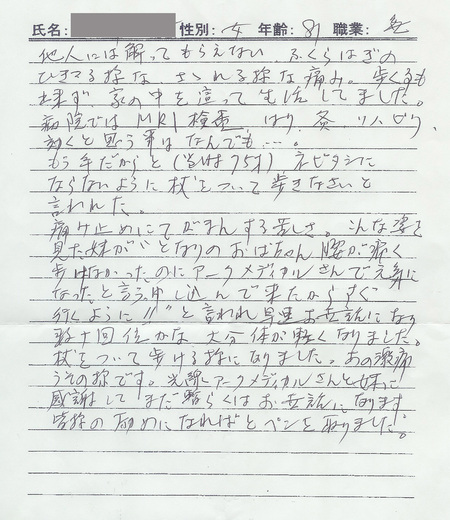 氏名: 性別: 女 年齢: 81 職業: 無
他人には解ってもらえない、ふくらはぎの
ひきつる様な、さゝれる様な痛み。歩くも
出来ず、家の中を這って生活してました。
病院ではMRI検査、はり、灸、リハビリ、
効くと思う事はなんでも…。
もう年だからと(当時75才)ネビタシに
ならないように杖をついて歩きなさいと
言われた。
痛け止めにてがまんする苦しさ。こんな姿を
見た妹が"となりのおばちゃん腰が痛く
歩けなかったのにアークメディカルさんで元気に
なったと言う申し込んで来たからすぐ
行くように!!"と言われ早速お世話になり
数十回位かな 大分体が軽くなりました。
杖をついて歩ける様になりました。あの激痛
うその様です。光線とアークメディカルさんと妹に
感謝して まだ暫らくはお世話になります
皆様の励めになればとペンを取りました。